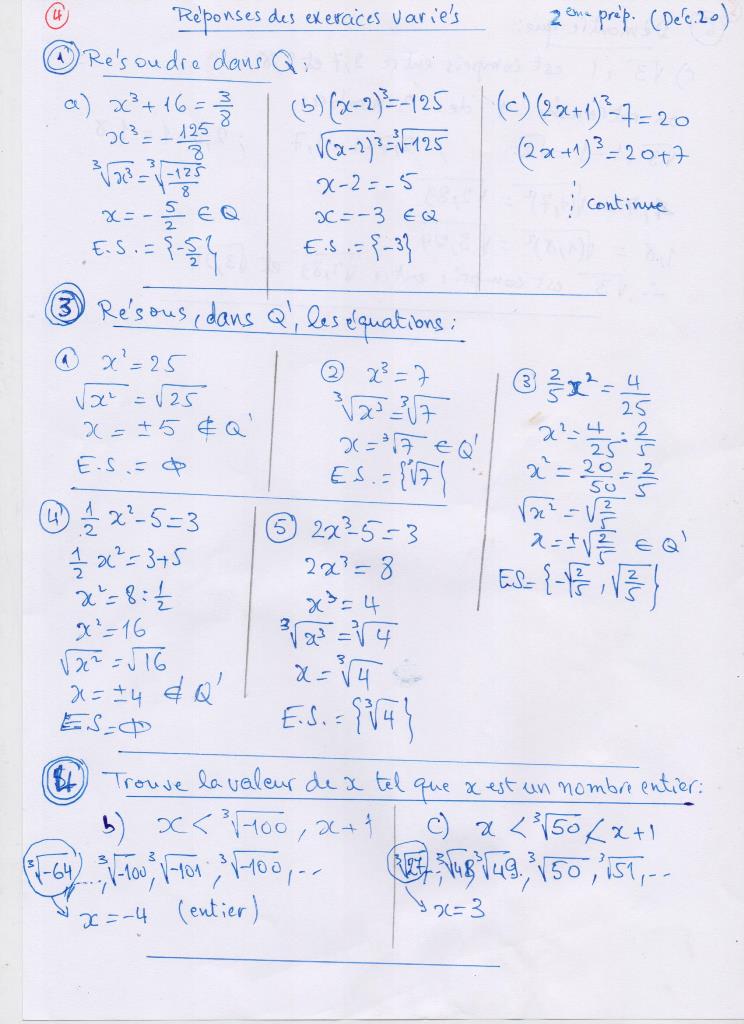 4 Réponses des exercices variés 2ème prép. (Déc. 20)
1 Résoudre dans Q :
a) x³ + 16 = 3/8
x³ = -125/8
∛x³ = ∛(-125/8)
x = -5/2 ∈ Q
E.S. = {-5/2}
(b) (x-2)³ = -125
√(x-2)³ = ∛-125
x - 2 = -5
x = -3 ∈ Q
E.S. = {-3}
(c) (2x+1)³ - 7 = 20
(2x+1)³ = 20+7
⋮ continue
3 Résous, dans Q', les équations :
1 x² = 25
√x² = √25
x = ±5 ∉ Q'
E.S. = ϕ
2 x³ = 7
∛x³ = ∛7
x = ∛7 ∈ Q'
E.S. = {∛7}
3 2/5 x² = 4/25
x² = 4/25 : 2/5
x² = 20/50 = 2/5
√x² = √(2/5)
x = ±√(2/5) ∈ Q'
ES = {-√(2/5), √(2/5)}
4 1/2 x² - 5 = 3
1/2 x² = 3+5
x² = 8 : 1/2
x² = 16
√x² = √16
x = ±4 ∉ Q'
E.S = ϕ
5 2x³ - 5 = 3
2x³ = 8
x³ = 4
∛x³ = ∛4
x = ∛4
E.S. = {∛4}
4 Trouve la valeur de x tel que x est un nombre entier :
b) x < ∛-100, x+1
∛-64 ...., ∛-100, ∛-101, ∛-100, ...
x = -4 (entier)
c) x < ∛50 < x+1
∛27 ..., ∛48, ∛49, ∛50, ∛51, ...
x = 3